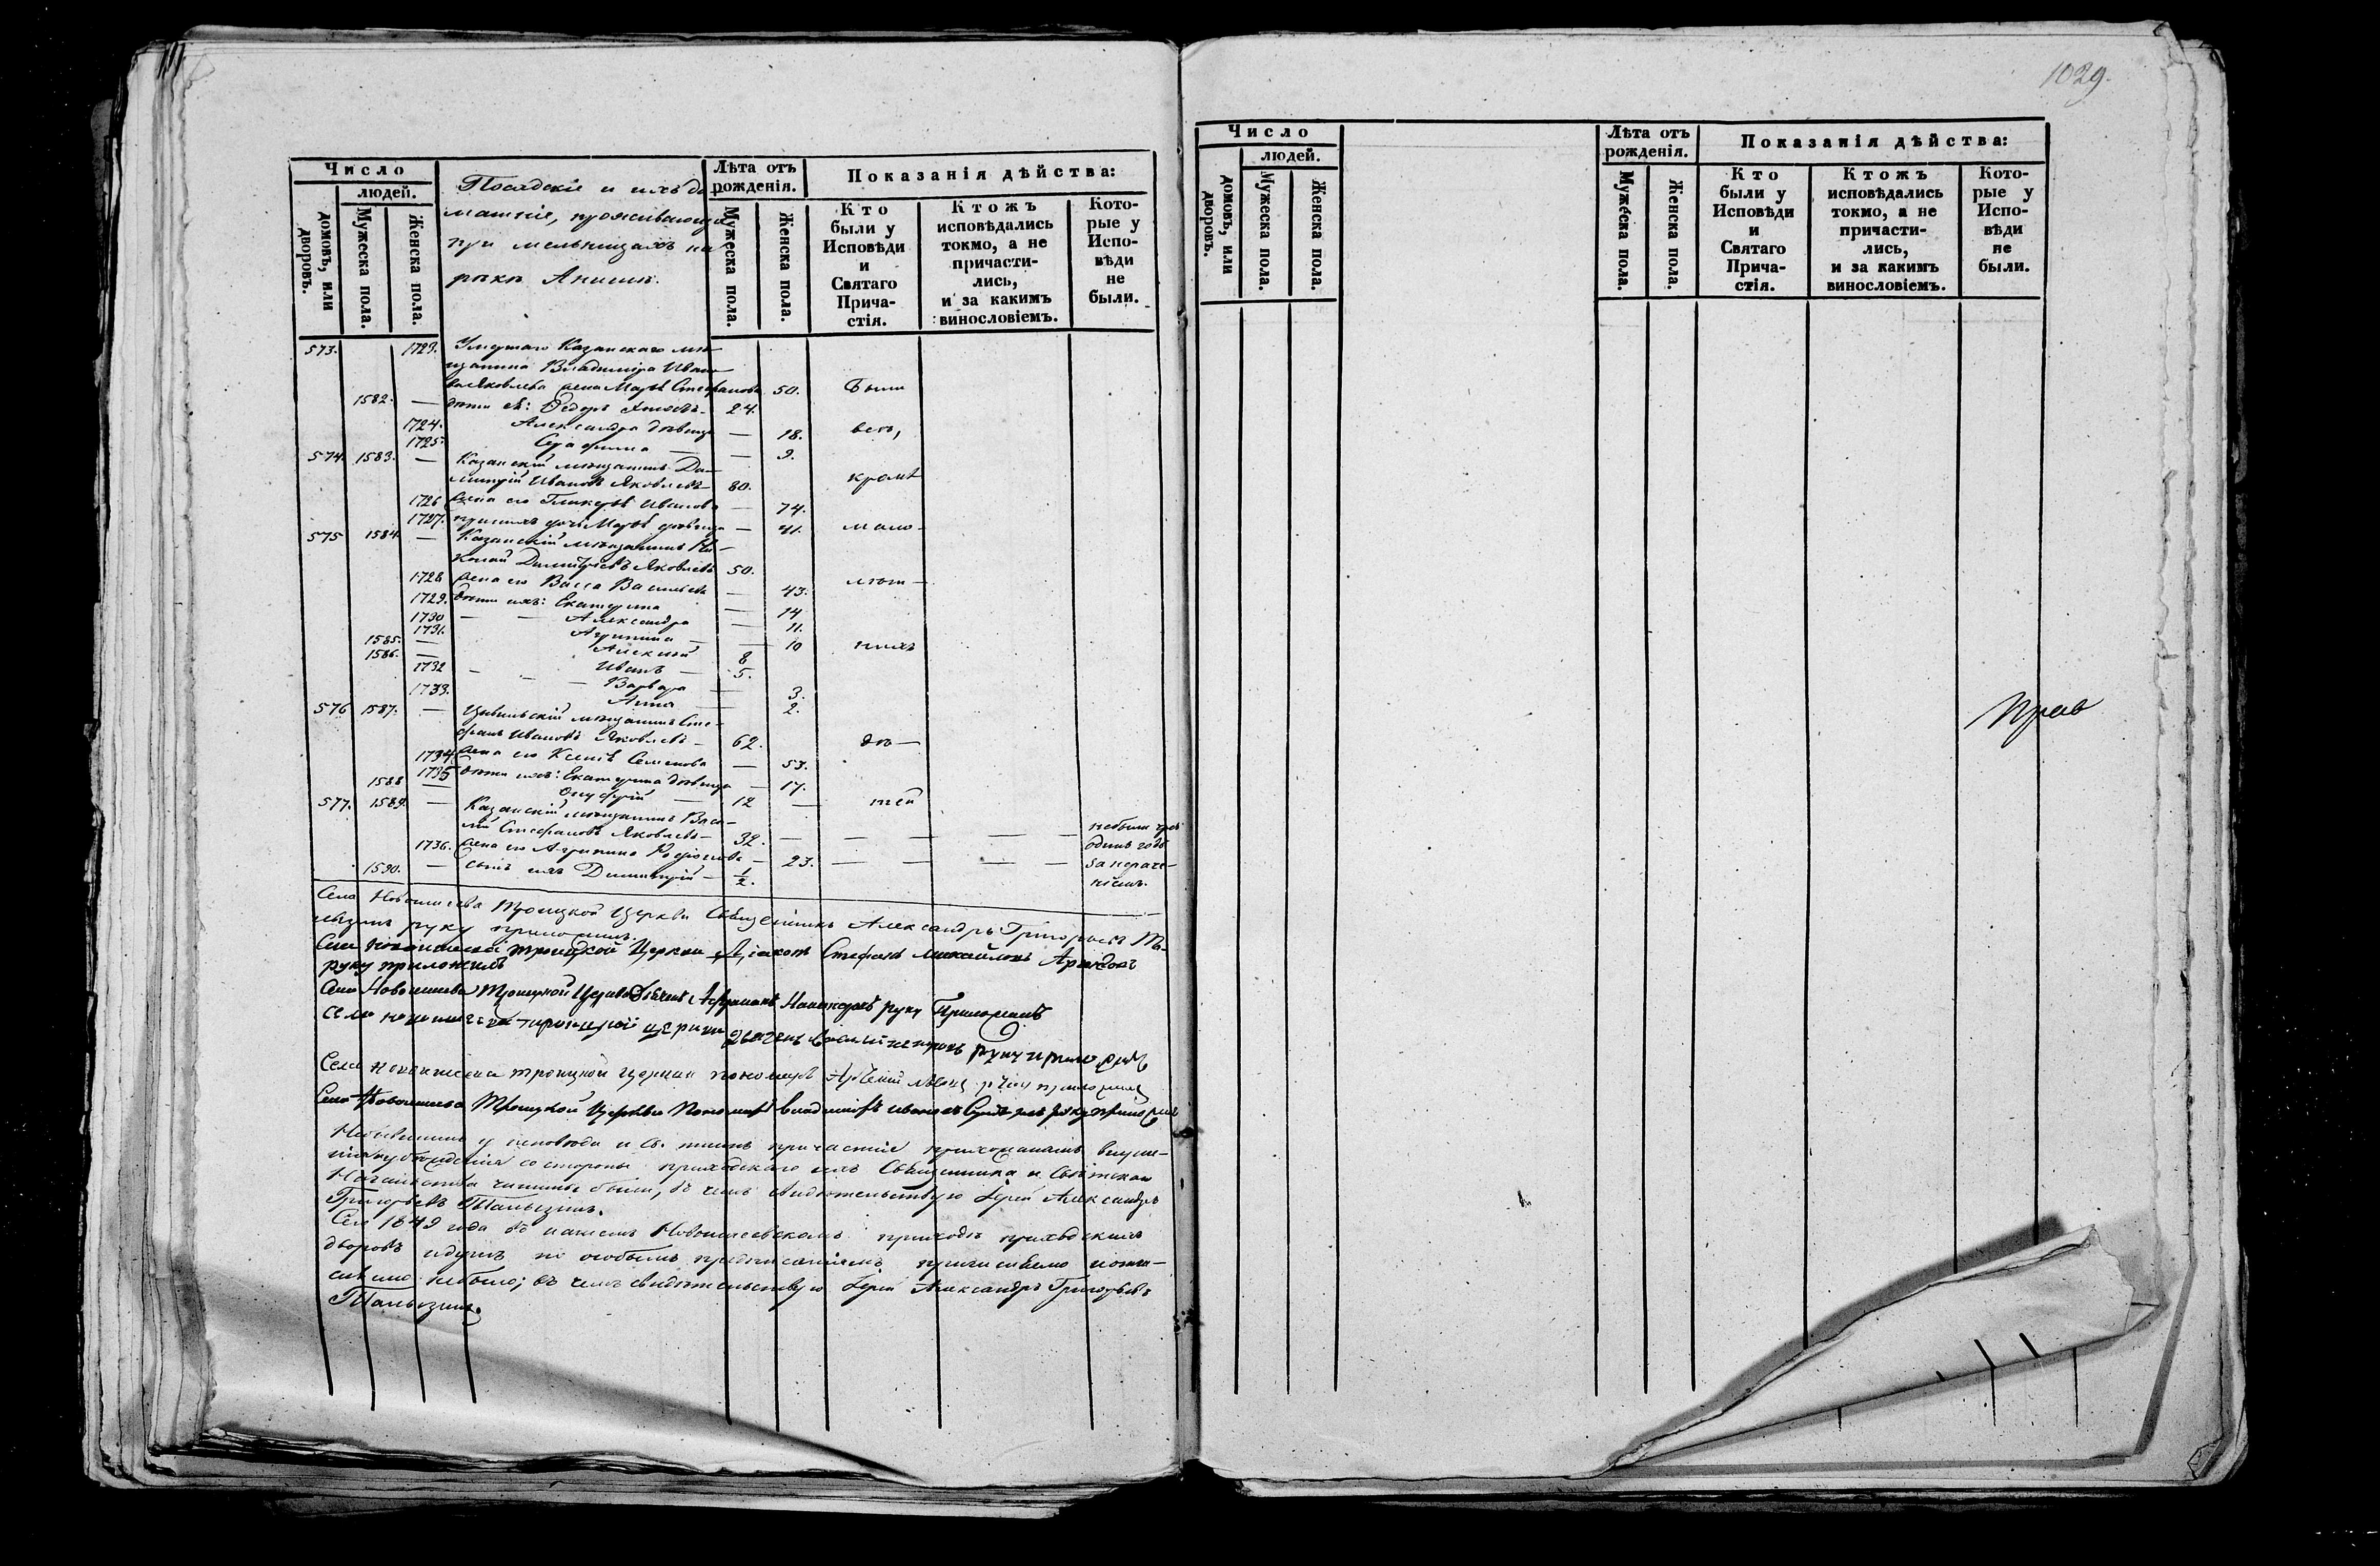 1029.
Число
людей.
домовъ, или дворовъ.
Мужеска пола.
Женска пола.
Посадскіе и ихъ до
машніе, проживающіе
при мельницахъ на
рѣкѣ Анишѣ.
Лѣта отъ
рожденія.
Мужеска пола.
Женска пола.
Показанія дѣйства:
Кто
были у
Исповѣди
и
Святаго
Прича-
стія.
Ктожъ
исповѣдались
токмо, а не
причасти-
лись,
и за какимъ
винословіемъ.
Кото-
рые у
Испо-
вѣди
не
были.
573. 1723. Умершаго Казанскаго мѣ-
щанина Владиміра Ивано-
ва Яковлева жена Марѳа Стефанова 50. Были
1582. — дѣти ея: Ѳедоръ — 24.
1724. Александра дѣвица — 18. всѣ,
1725. Серафима — — 9.
574. 1583. — Казанскій мѣщанинъ Ди-
митрій Ивановъ Яковлевъ — 80. кромѣ
1726 жена его Гликерія Иванова — 74.
1727. дочь Марѳа дѣвица — 41. мало-
575 1584. — Казанскій мѣщанинъ Ни-
колай Димитріевъ Яковлевъ 50.
1728 жена его Васса Васильева — 43. лѣт-
1729. дѣти ихъ: Екатерина — 14
1730 — — Александра — 11.
1731. Агрипина — — 10 нихъ
1585. — Алексій 8
1586. — Иванъ — 5.
1732 — — Варвара — 3.
1733. Анна — 2.
576 1587. — Цивильскій мѣщанинъ Сте-
фанъ Ивановъ Яковлевъ — 62. дѣ-
1734. жена его Ксенія Семенова — 53.
1735 дѣти ихъ: Екатерина дѣвица — 17.
1588 — Онуфрій — 12 — тей
577. 1589. — Казанскій мѣщанинъ Васи-
лій Стефановъ Яковлевъ — 32. — — — — небыли
одинъ годъ
1736. жена его Агрипина — 23. — — — — за нераче-
1590. — сынъ ихъ Димитрій — 1/2. ніемъ.
Села Троицкой Церкви Священникъ Александръ Григорьевъ Та-
лызинъ руку приложилъ.
Села Троицкой Церкви Діаконъ Стефанъ Михайловъ
руку приложилъ
Села Троицкой Церкви руку Приложилъ
Села троицкой церкви руку приложилъ
Села троицкой церкви пономарь руку приложилъ
Села Троицкой Церкви Пономарь Владиміръ Ивановъ руку приложилъ
Небывшимъ у исповѣди и Св. таинъ причастія прихожанамъ внуше-
нія и убѣжденія со стороны приходскаго ихъ Священника и Свѣтскаго
Начальства чинимы были, въ чемъ свидѣтельствую Іерей Александръ
Григорьевъ Талызинъ.
Сего 1849 года въ нашемъ приходѣ приходскихъ
дворовъ и душъ по особымъ предписаніямъ причисляемо
небыло; въ чемъ свидѣтельствую Іерей Александръ Григорьевъ
Талызинъ.
Число
людей.
домовъ, или дворовъ.
Мужеска пола.
Женска пола.
Лѣта отъ
рожденія.
Мужеска пола.
Женска пола.
Показанія дѣйства:
Кто
были у
Исповѣди
и
Святаго
Прича-
стія.
Ктожъ
исповѣдались
токмо, а не
причасти-
лись,
и за какимъ
винословіемъ.
Кото-
рые у
Испо-
вѣди
не
были.